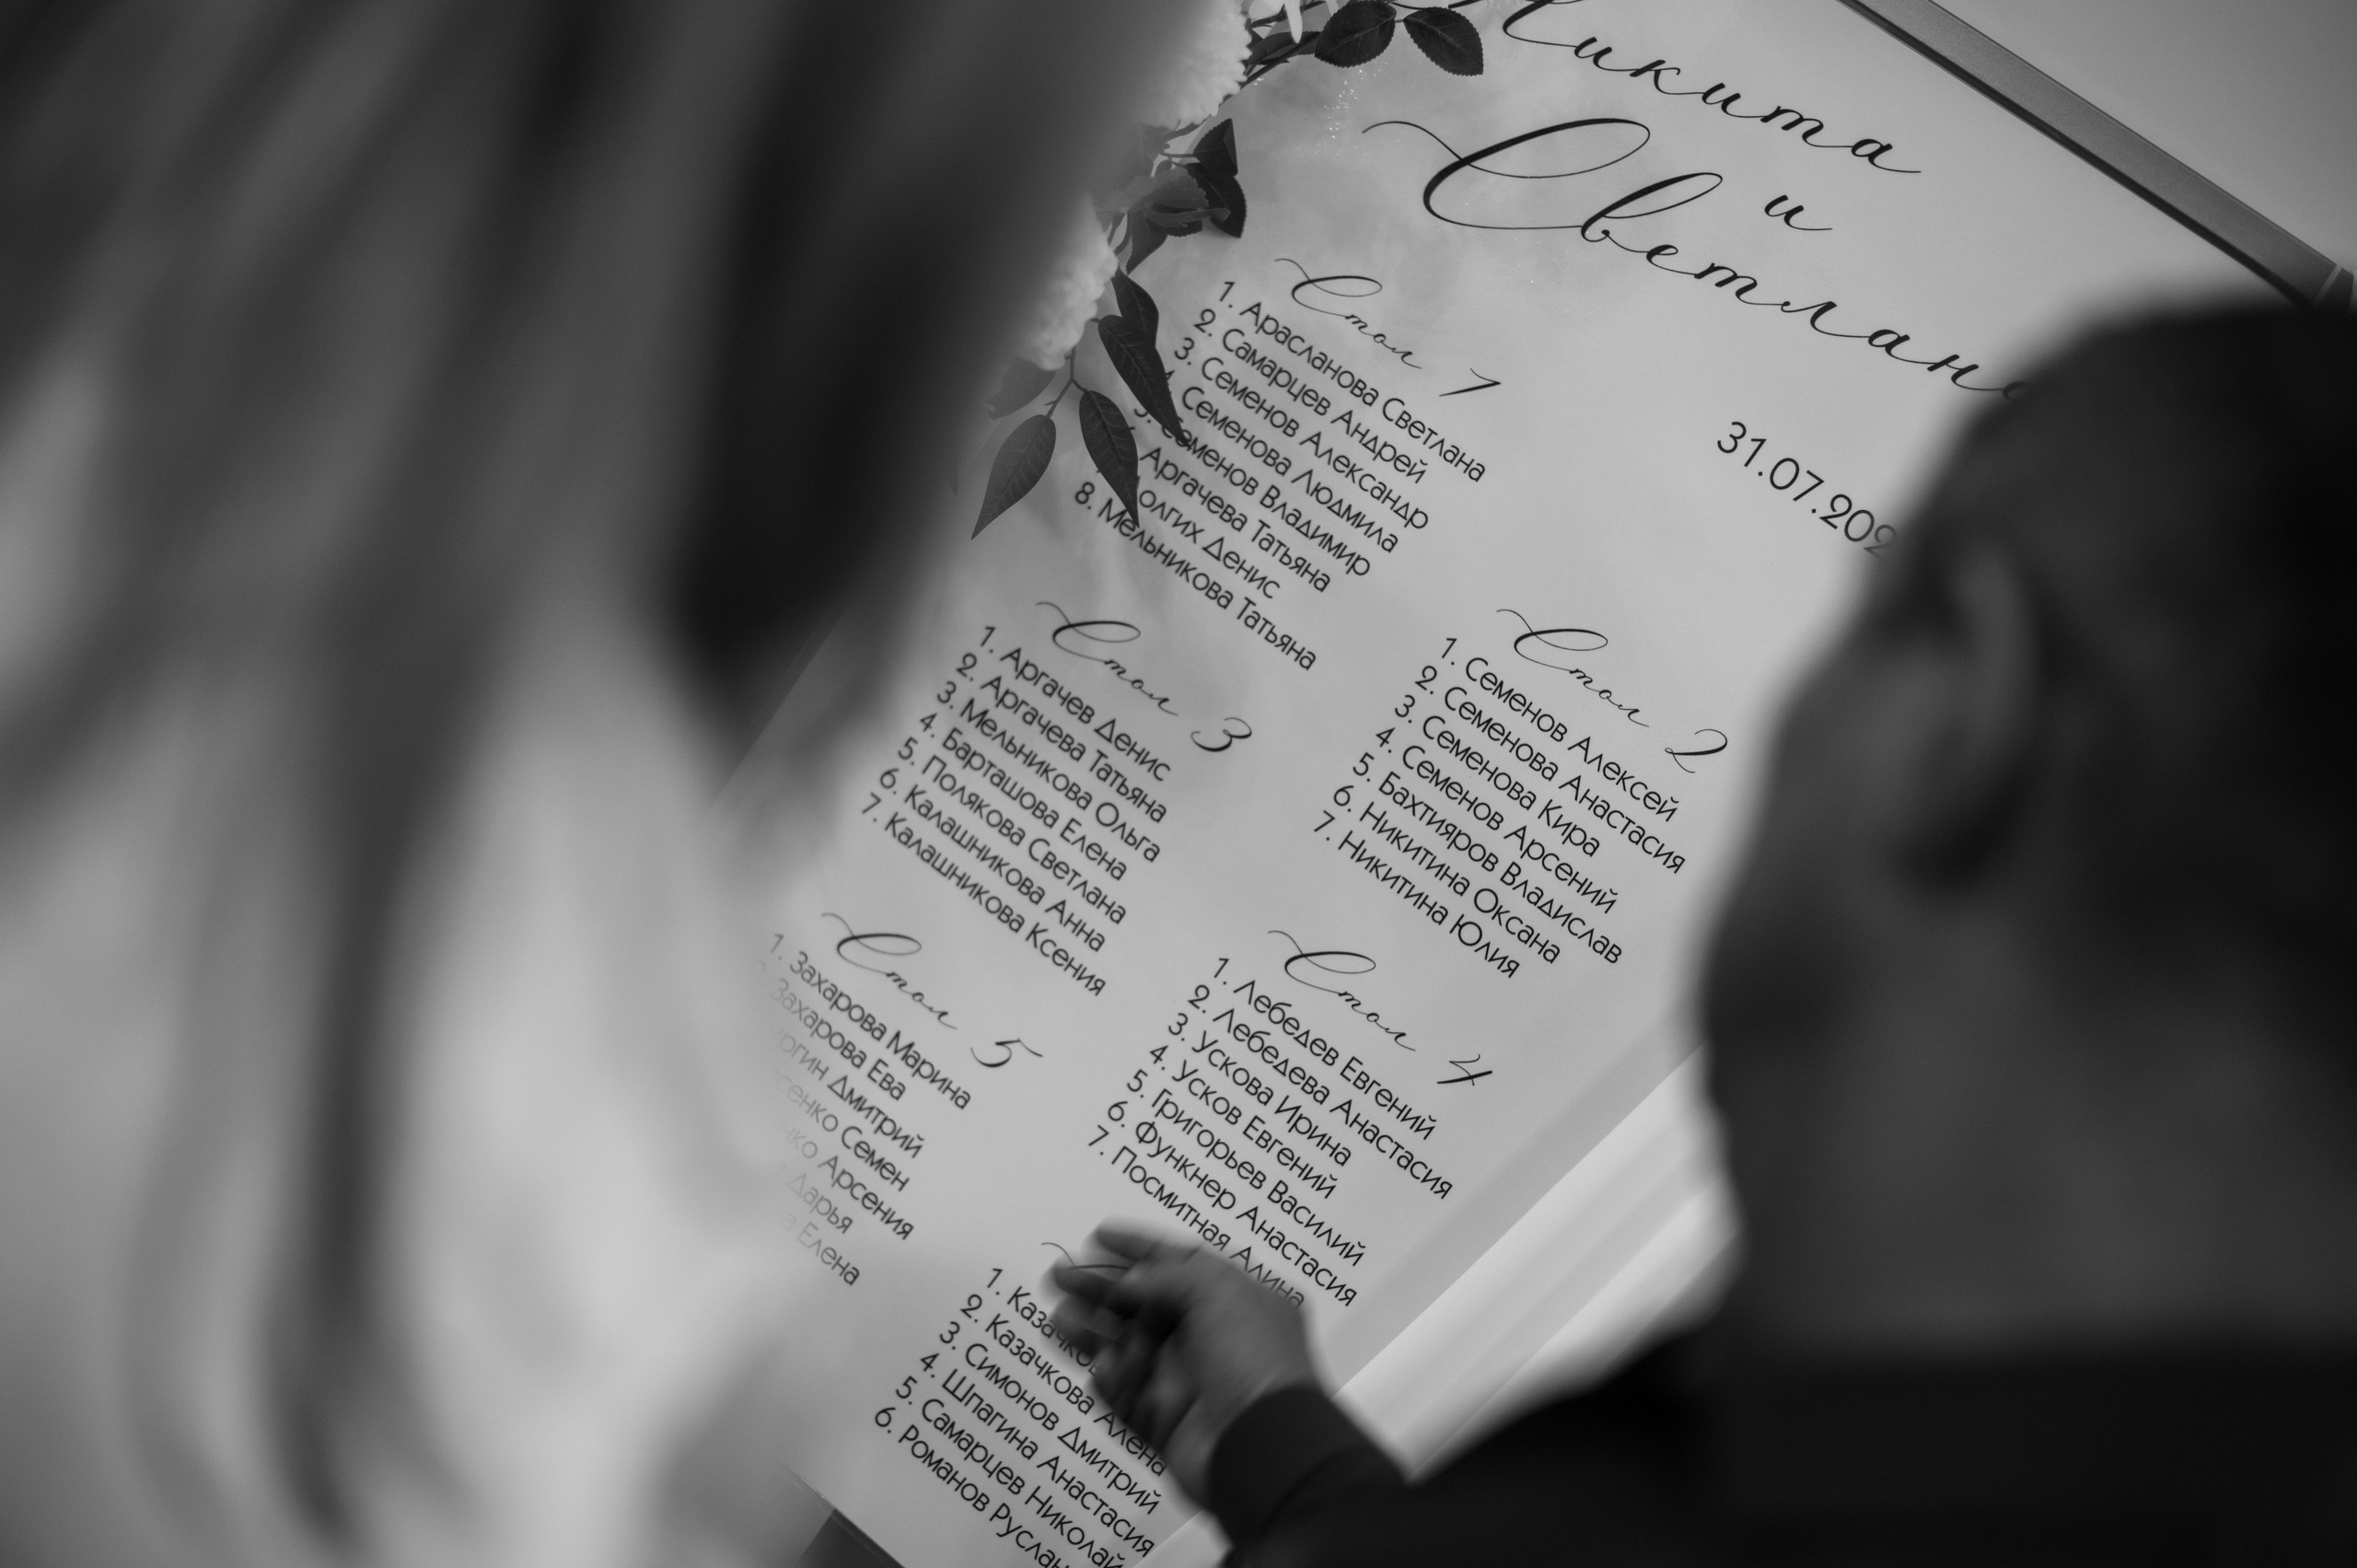 Никита
и
Светлана
31.07.202
Стол 1
1. Арасланова Светлана
2. Самарцев Андрей
3. Семенов Александр
Семенова Людмила
5. Семенов Владимир
Аргачева Татьяна
Долгих Денис
8. Мельникова Татьяна
Стол 2
1. Семенов Алексей
2. Семенова Анастасия
3. Семенова Кира
4. Семенов Арсений
5. Бахтияров Владислав
6. Никитина Оксана
7. Никитина Юлия
Стол 3
1. Аргачев Денис
2. Аргачева Татьяна
3. Мельникова Ольга
4. Барташова Елена
5. Полякова Светлана
6. Калашникова Анна
7. Калашникова Ксения
Стол 4
1. Лебедев Евгений
2. Лебедева Анастасия
3. Ускова Ирина
4. Усков Евгений
5. Григорьев Василий
6. Функнер Анастасия
7. Посмитная Алина
Стол 5
1. Захарова Марина
Захарова Ева
Дмитрий
Семен
Арсения
Дарья
Елена
1. Казачков
2. Казачкова Алена
3. Симонов Дмитрий
4. Шпагина Анастасия
5. Самарцев Николай
6. Романов Руслан